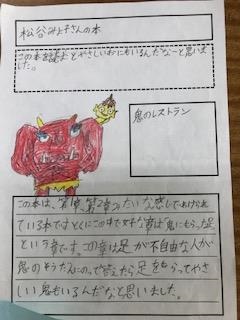 松谷みよ子さんの本
この本を読むとやさしいおにもいるんだなーと思いま
した。
鬼のレストラン
この本は、第1章、第2章みたいな感じでわけられ
ている本です。とくにこの中で好きな章は「鬼にもらった足」
という章です。この章は足が不自由な人が
鬼のそうだんにのって答えたら足をもらってやさ
しい鬼もいるんだなと思いました。